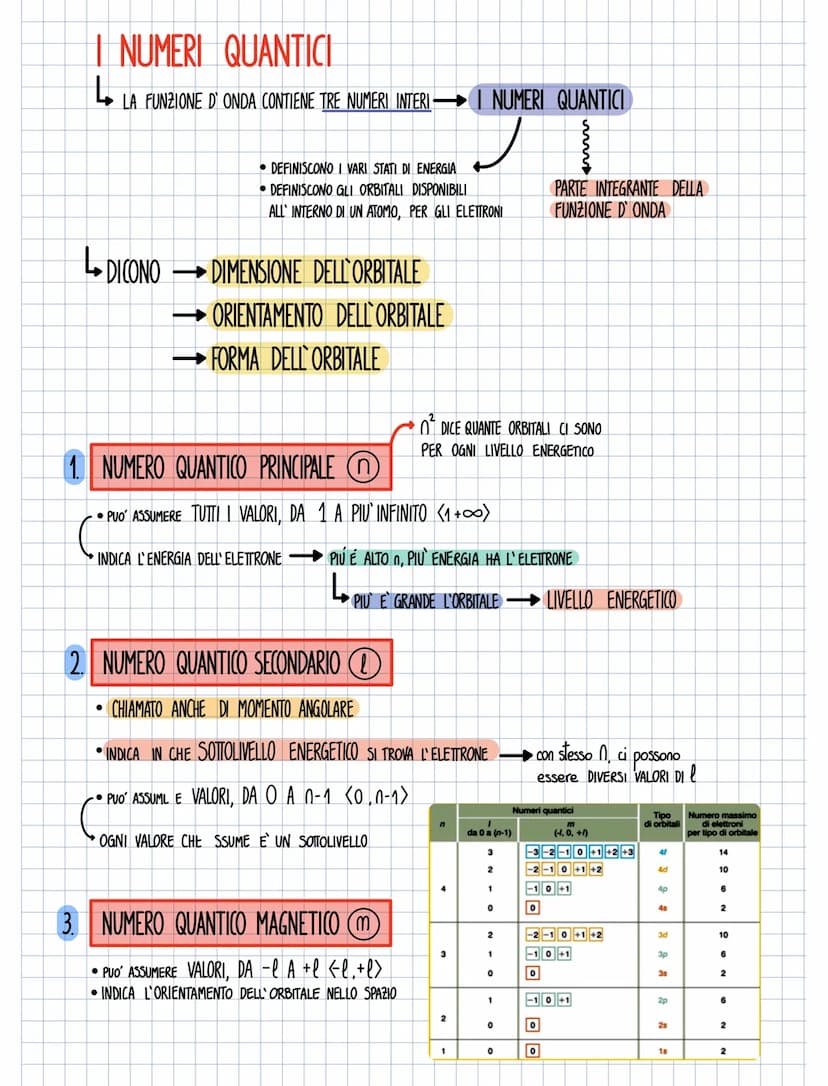 I NUMERI QUANTICI
LA FUNZIONE D'ONDA CONTIENE TRE NUMERI INTERI → I NUMERI QUANTICI
• DEFINISCONO I VARI STATI DI ENERGIA
• DEFINISCONO GLI ORBITALI DISPONIBILI
ALL'INTERNO DI UN ATOMO, PER GLI ELETTRONI
PARTE INTEGRANTE DELLA
FUNZIONE D'ONDA
DICONO → DIMENSIONE DELL'ORBITALE
→ ORIENTAMENTO DELL'ORBITALE
→ FORMA DELL'ORBITALE
n² DICE QUANTE ORBITALI CI SONO
PER OGNI LIVELLO ENERGETICO
1. NUMERO QUANTICO PRINCIPALE n
• PUO' ASSUMERE TUTTI I VALORI, DA 1 A PIU' INFINITO <1+∞>
INDICA L'ENERGIA DELL'ELETTRONE → PIÚ É ALTO n, PIU' ENERGIA HA L'ELETTRONE
PIU' E' GRANDE L'ORBITALE → LIVELLO ENERGETICO
2. NUMERO QUANTICO SECONDARIO ℓ
• CHIAMATO ANCHE DI MOMENTO ANGOLARE
• INDICA IN CHE SOTTOLIVELLO ENERGETICO SI TROVA L'ELETTRONE → con stesso n, ci possono
essere DIVERSI VALORI DI ℓ
• PUO' ASSUML E VALORI, DA 0 A n-1 <0,n-1>
OGNI VALORE CHE SSUME E' UN SOTTOLIVELLO
3. NUMERO QUANTICO MAGNETICO m
• PUO' ASSUMERE VALORI, DA -ℓ A +ℓ <-ℓ,+ℓ>
• INDICA L'ORIENTAMENTO DELL'ORBITALE NELLO SPAZIO
Numeri quantici
n
l
da 0 a (n-1)
m
(-l, 0, +l)
Tipo
di orbitali
Numero massimo
di elettroni
per tipo di orbitale
3 -3 -2 -1 0 +1 +2 +3 4f 14
2 -2 -1 0 +1 +2 4d 10
4 1 -1 0 +1 4p 6
0 0 4s 2
2 -2 -1 0 +1 +2 3d 10
3 1 -1 0 +1 3p 6
0 0 3s 2
1 -1 0 +1 2p 6
2
0 0 2s 2
1 0 0 1s 2